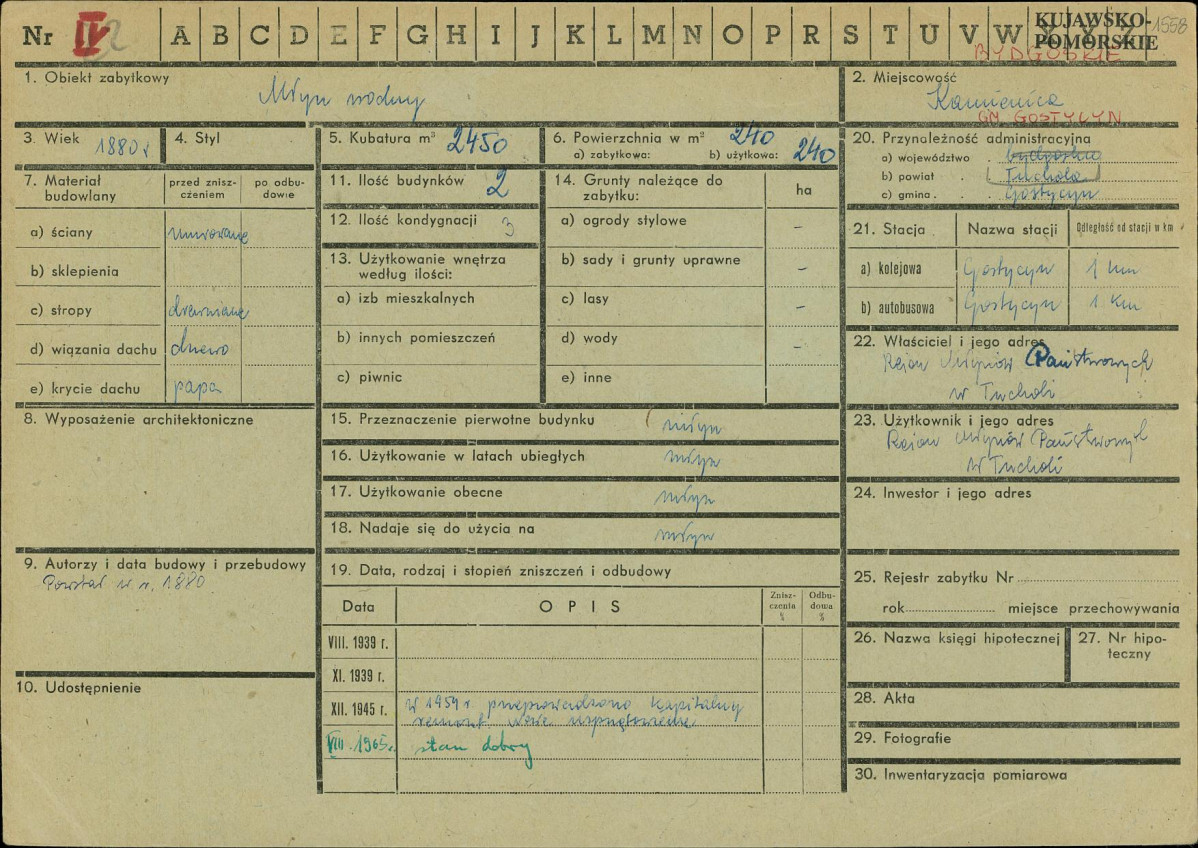 Nr IV A B C D E F G H I J K L M N O P R S T U V W KUJAWSKO-POMORSKIE 1558
BYDGOSKIE
1. Obiekt zabytkowy
Młyn wodny
2. Miejscowość
Kamienica
GM. GOSTYCYN
3. Wiek 1880 r
4. Styl
5. Kubatura m³ 2450
6. Powierzchnia w m² 240
a) zabytkowa: b) użytkowa: 240
7. Materiał budowlany
przed zniszczeniem
po odbudowie
a) ściany murowane
b) sklepienia
c) stropy drewniane
d) wiązania dachu drewno
e) krycie dachu papa
8. Wyposażenie architektoniczne
9. Autorzy i data budowy i przebudowy
Powstał w r. 1880
10. Udostępnienie
11. Ilość budynków 2
12. Ilość kondygnacji 3
13. Użytkowanie wnętrza
według ilości:
a) izb mieszkalnych
b) innych pomieszczeń
c) piwnic
14. Grunty należące do
zabytku: ha
a) ogrody stylowe –
b) sady i grunty uprawne –
c) lasy –
d) wody –
e) inne
15. Przeznaczenie pierwotne budynku młyn
16. Użytkowanie w latach ubiegłych młyn
17. Użytkowanie obecne młyn
18. Nadaje się do użycia na młyn
19. Data, rodzaj i stopień zniszczeń i odbudowy
Data OPIS Zniszczenia % Odbudowa %
VIII. 1939 r.
XI. 1939 r.
XII. 1945 r. w 1959 r. przeprowadzono kapitalny
remont
VIII. 1965 r. stan dobry
20. Przynależność administracyjna
a) województwo . bydgoskie
b) powiat . Tuchola
c) gmina . . Gostycyn
21. Stacja Nazwa stacji Odległość od stacji w km
a) kolejowa Gostycyn 1 km
b) autobusowa Gostycyn 1 km
22. Właściciel i jego adres
Rejon Młynów Państwowych
w Tucholi
23. Użytkownik i jego adres
Rejon Młynów Państwowych
w Tucholi
24. Inwestor i jego adres
25. Rejestr zabytku Nr
rok miejsce przechowywania
26. Nazwa księgi hipotecznej
27. Nr hipoteczny
28. Akta
29. Fotografie
30. Inwentaryzacja pomiarowa